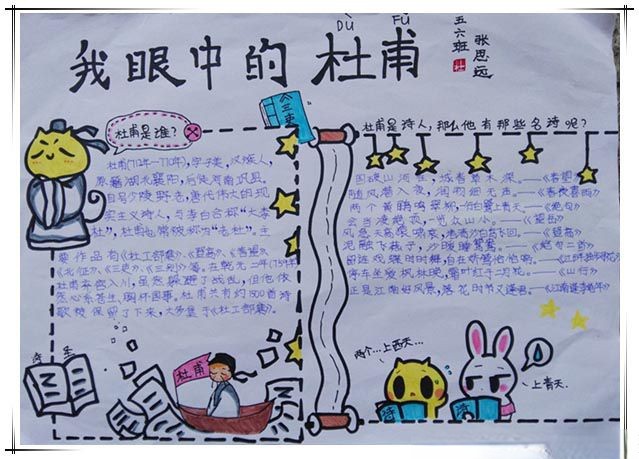 Dù Fǔ
我眼中的杜甫
五六班
张思远
三吏
杜甫是谁?
杜甫(712年一770年),字子美,汉族人,
原籍湖北襄阳,后徙河南巩县,
自号少陵野老,唐代伟大的现
实主义诗人,与李白合称"大李
杜",杜甫也常被称为"老杜"。主
要作品有《杜工部集》、《登高》、《春望》
《北征》、《三吏》、《三别》等。在乾元二年(759)年
杜甫弃官入川,虽然躲避了战乱,但他依
然心系苍生,胸怀国事。杜甫共有约1500首诗
歌被保留了下来,大多集于《杜工部集》。
诗圣
杜甫
杜甫是诗人,那么他有那些名诗呢?
国破山河在,城春草木深。——《春望》
随风潜入夜,润物细无声。——《春夜喜雨》
两个黄鹂鸣翠柳,一行白鹭上青天。——《绝句》
会当凌绝顶,一览众山小。——《望岳》
风急天高猿啸哀,渚清沙白鸟飞回。——《登高》
泥融飞燕子,沙暖睡鸳鸯。——《绝句二首》
留连戏蝶时时舞,自在娇莺恰恰啼。——《江畔独步寻花》
停车坐爱枫林晚,霜叶红于二月花。——《山行》
正是江南好风景,落花时节又逢君。——《江南逢李龟年》
两个...上西天...
...上青天.
诗
诗